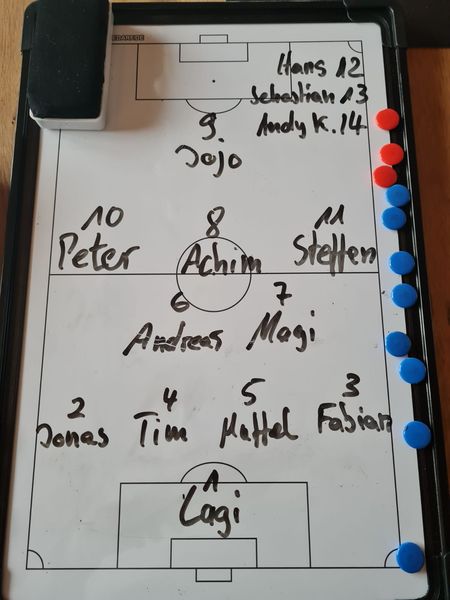 Hans 12
Sebastian 13
Andy K. 14
9
Jojo
10 8 11
Peter Achim Steffen
6 7
Andreas Magi
2 4 5 3
Jonas Tim Muffel Fabian
1
Lagi